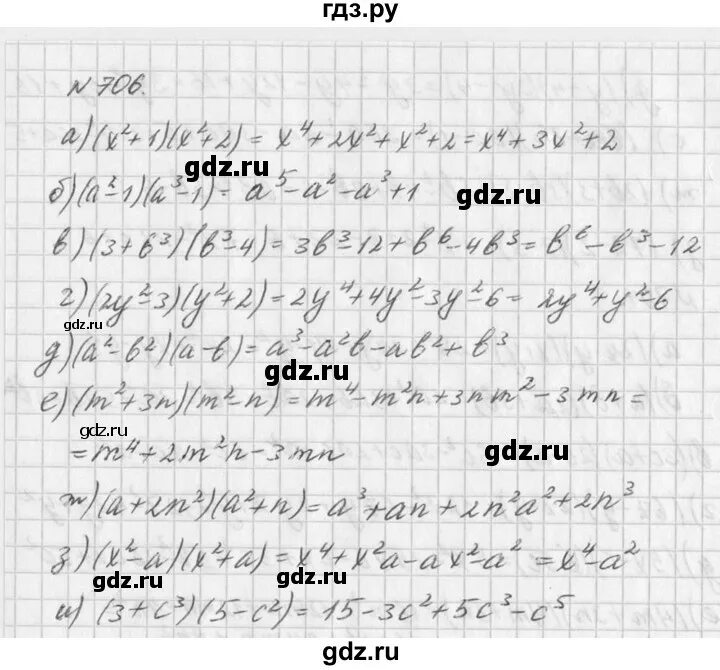 гдз.ру
N 706.
а) (x²+1)(x²+2) = x⁴+2x²+x²+2 = x⁴+3x²+2
gdz.ru
gdz.ru
б) (a²-1)(a³-1) = a⁵-a²-a³+1
в) (3+b³)(b³-4) = 3b³-12+b⁶-4b³ = b⁶-b³-12
г) (2y²-3)(y²+2) = 2y⁴+4y²-3y²-6 = 2y⁴+y²-6
gdz.ru
д) (a²-b²)(a-b) = a³-a²b-ab²+b³
gdz.ru
е) (m²+3n)(m²-n) = m⁴-m²n+3nm²-3mn =
gdz.ru
= m⁴+2m²n-3mn
gdz.ru
ж) (a+2n²)(a²+n) = a³+an+2n²a²+2n³
з) (x²-a)(x²+a) = x⁴+x²a-ax²-a² = x⁴-a²
gdz.ru
gdz.ru
и) (3+c³)(5-c²) = 15-3c²+5c³-c⁵
gdz.ru